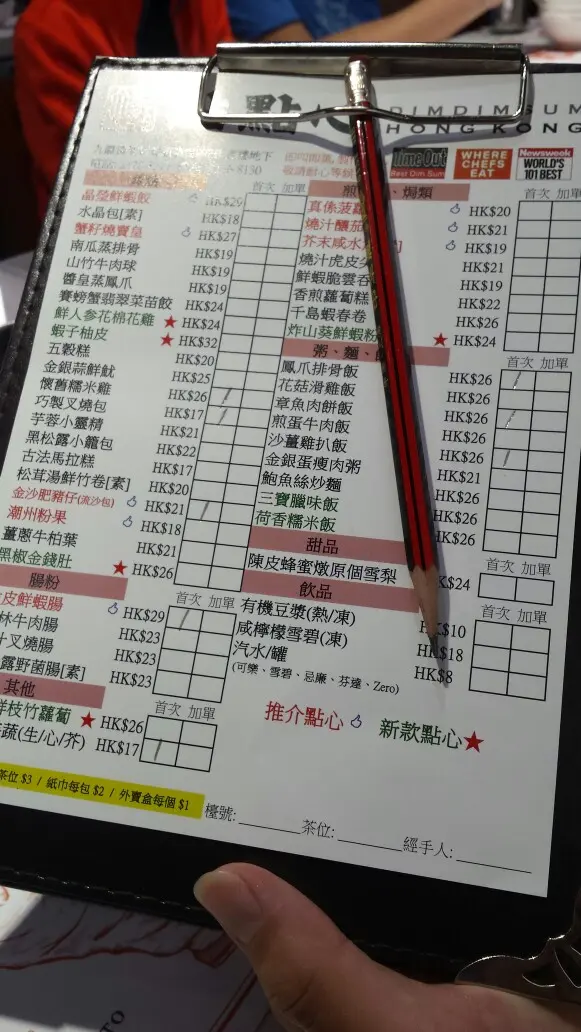 點心
DIMDIMSUM
HONG KONG
TimeOut
Best Dim Sum
WHERE
CHEFS
EAT
Newsweek
WORLD'S
101 BEST
首次 加單
晶瑩鮮蝦餃 HK$29
水晶包[素] HK$18
蟹籽燒賣皇 HK$27
南瓜蒸排骨 HK$19
山竹牛肉球 HK$19
醬皇蒸鳳爪 HK$19
賽螃蟹翡翠菜苗餃 HK$24
鮮人参花棉花雞 ★ HK$24
蝦子柚皮 ★ HK$32
五穀糕 HK$20
金銀蒜鮮魷 HK$25
懷舊糯米雞 HK$26
巧製叉燒包 HK$17
芋蓉小靈精 HK$21
黑松露小籠包 HK$22
古法馬拉糕 HK$17
松茸湯鮮竹卷[素] HK$20
金沙肥豬仔(流沙包) HK$21
潮州粉果 HK$18
薑蔥牛柏葉 HK$21
黑椒金錢肚 ★ HK$26
腸粉 首次 加單
皮鮮蝦腸 HK$29
林牛肉腸 HK$23
叉燒腸 HK$23
露野菌腸[素] HK$23
其他 首次 加單
枝竹蘿蔔 ★ HK$26
蔬(生/心/芥) HK$17
焗類 首次 加單
HK$20
HK$21
芥末咸水 HK$19
燒汁虎皮尖 HK$21
鮮蝦脆雲吞 HK$19
香煎蘿蔔糕 HK$22
千島蝦春卷 HK$26
炸山葵鮮蝦粉 ★ HK$24
粥、麵、 首次 加單
鳳爪排骨飯 HK$26
花菇滑雞飯 HK$26
章魚肉餅飯 HK$26
煎蛋牛肉飯 HK$26
沙薑雞扒飯 HK$26
金銀蛋瘦肉粥 HK$21
鮑魚絲炒麵 HK$26
三寶臘味飯
荷香糯米飯
甜品 首次 加單
陳皮蜂蜜燉原個雪梨 HK$24
飲品 首次 加單
有機豆漿(熱/凍) HK$10
咸檸檬雪碧(凍) HK$18
汽水/罐 HK$8
(可樂、雪碧、忌廉、芬達、Zero)
推介點心 新款點心★
茶位 $3 / 紙巾每包 $2 / 外賣盒每個 $1
檯號: 茶位: 經手人: